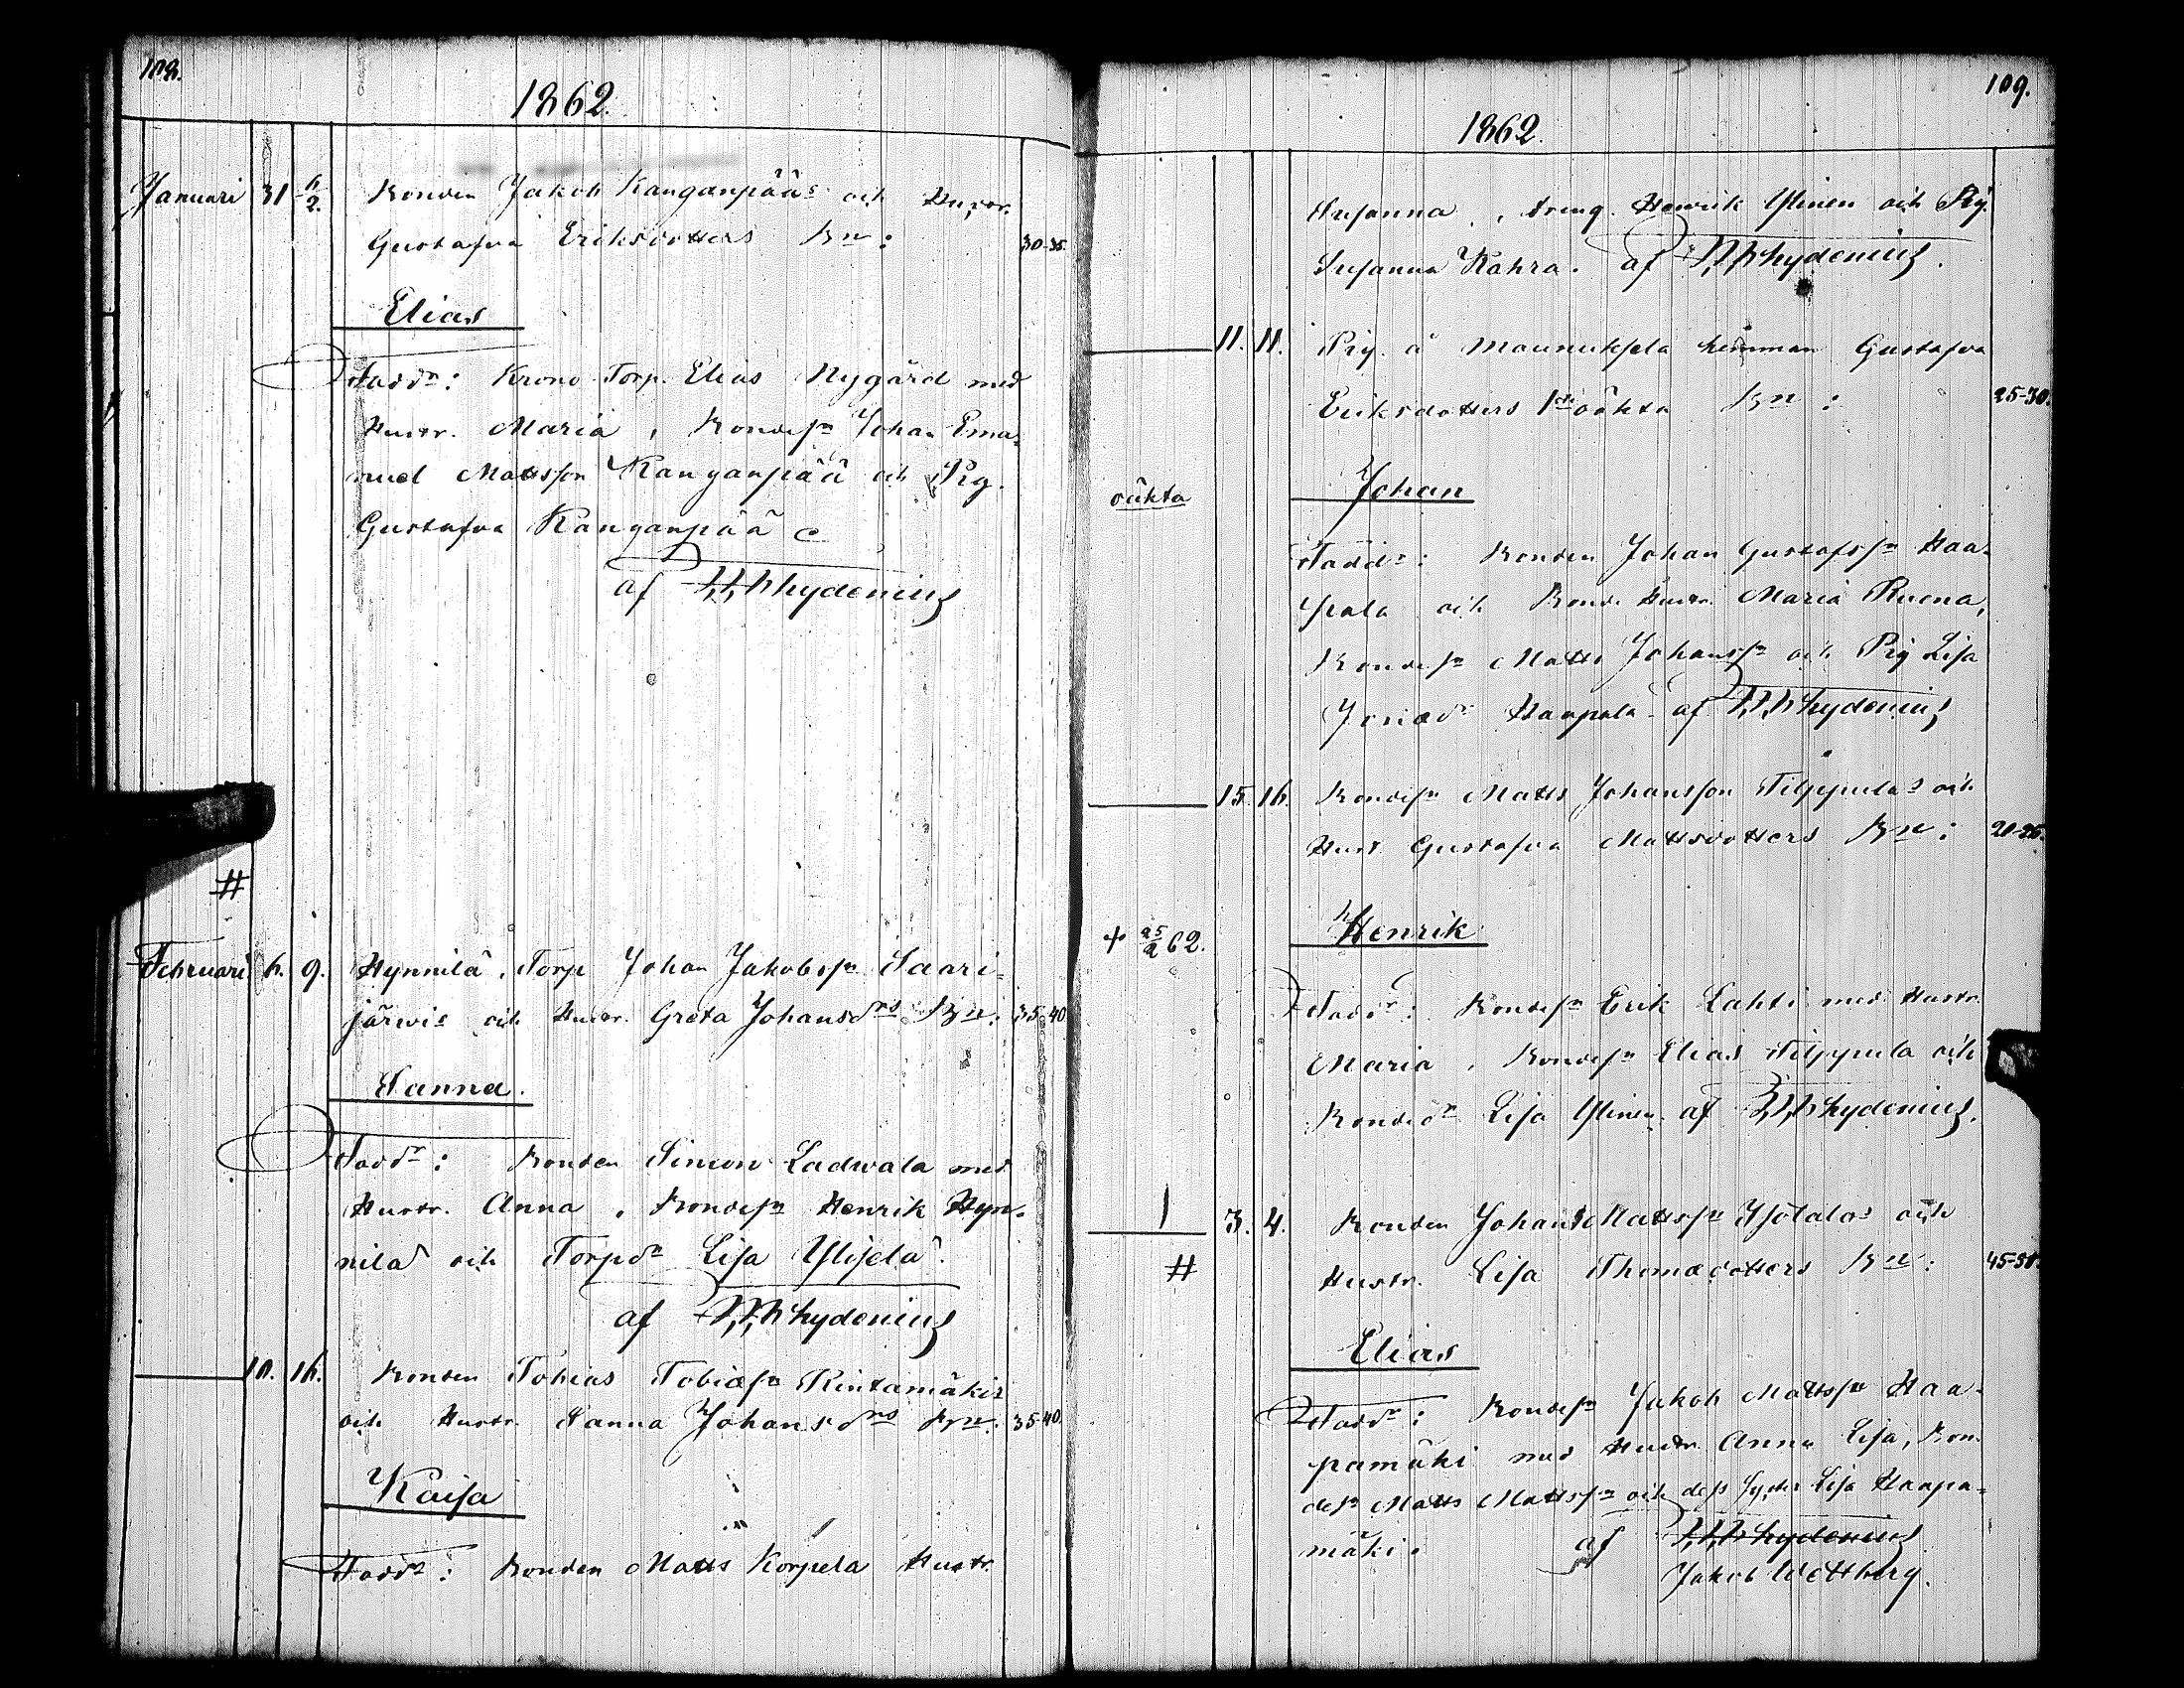 108.
1862.
Januari 31 6/2. Bonden Jakob Kanganpääs och Hustr.
Gustafva Eriksdotters Bn: 30-35.
Elias
Faddr: Krono Torp. Elias Nygård med
Hustr. Maria, Bondesn Johan Ema-
nuel Mattsson Kanganpää och Pig.
Gustafva Kanganpää
af Chydenius
#
Februari 6. 9. Hynnilä, Torp Johan Jakobssn Saari-
järvis och Hustr. Greta Johansdrs Bn: 35-40
Sanna.
Faddr: Bonden Simon Ladwala med
Hustr. Anna, Bondesn Henrik Hyn-
nilä och Torpdr Lisa Ylijelä
af Chydenius
10. 16. Bonden Tobias Tobiæsn Rintamäkis
och Hustr. Sanna Johansdrs Bn: 35-40.
Kaisa
Faddr: Bonden Matts Korpela Hustr.
109.
1862.
Susanna, dreng. Henrik Ylinen och Pig.
Susanna Kahra. af Chydenius.
11. 11. Pig. å Maunuksela hemman Gustafva
Eriksdotters 1sta oäkta Bn: 25-30.
oäkta
Johan
Faddr: Bonden Johan Gustafssn Haa-
pala och Bond. Hustr. Maria Ruona,
Bondesn Matts Johanssn och Pig Lisa
Haapala af Chydenius
15. 16. Bondesn Matts Johansson Filppulas och
Hust. Gustafva Mattsdotters Bn: 20-25.
+ 25/2 62.
Henrik
Faddr: Bondesn Erik Lahti med Hustr.
Maria, Bondesn Elias Filppula och
Bondedr Lisa Ylinen. af Chydenius.
3. 4. Bonden Johan Mattssn och
Hustr. Lisa Thomædotters Bn: 45-50.
#
Elias
Faddr: Bondesn Jakob Mattssn Haa-
pamäki med Hustr. Anna Lisa, Bon-
desn Matts Mattssn och dess syster Lisa Haapa-
mäki. af Chydenius
Jakob Wettberg.